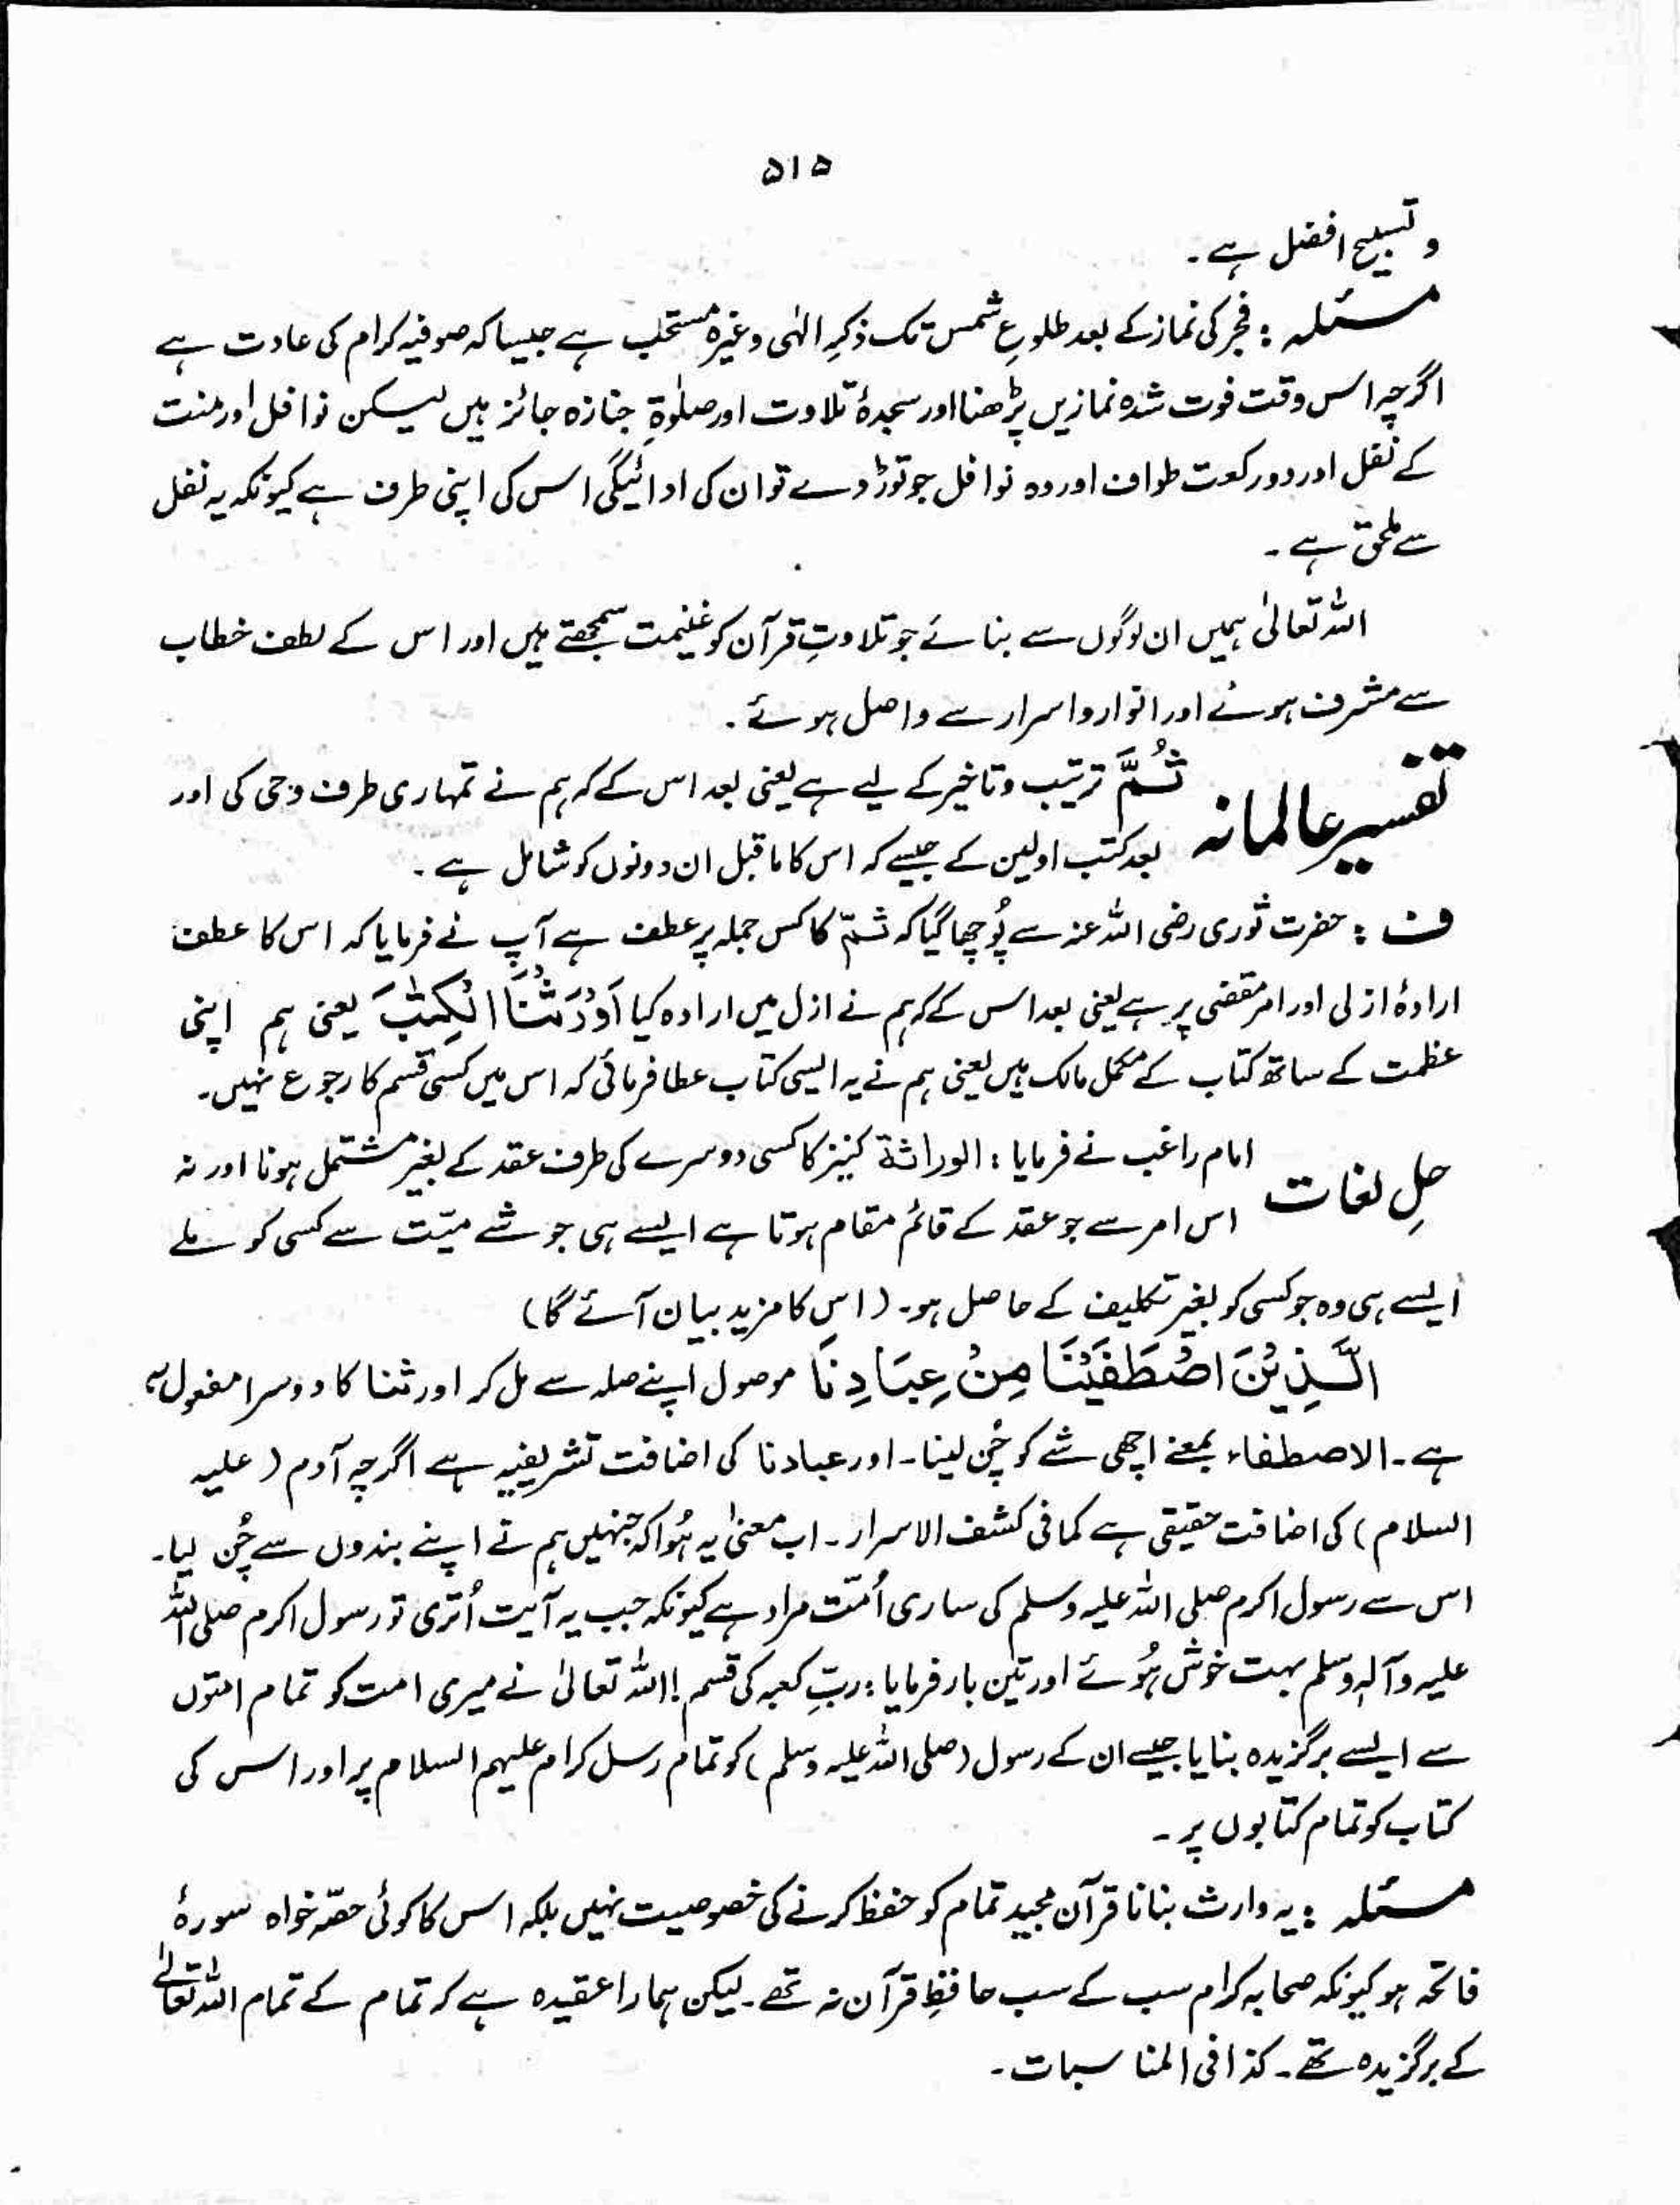 ۵۱۵
و تسبیح افضل ہے۔
مسئلہ : فجر کی نماز کے بعد طلوعِ شمس تک ذکرِ الہٰی وغیرہ مستحب ہے جیسا کہ صوفیہ کرام کی عادت ہے
اگرچہ اس وقت فوت شدہ نمازیں پڑھنا اور سجدۂ تلاوت اور صلٰوۃِ جنازہ جائز ہیں لیکن نوافل اور منت
کے نفل اور دو رکعت طواف اور وہ نوافل جو توڑ دے تو ان کی ادائیگی اس کی اپنی طرف ہے کیونکہ یہ نفل
سے ملحق ہے۔
اللہ تعالیٰ ہمیں ان لوگوں سے بنائے جو تلاوتِ قرآن کو غنیمت سمجھتے ہیں اور اس کے لطف خطاب
سے مشرف ہوئے اور انوار و اسرار سے واصل ہوئے۔
تفسیر عالمانہ ثُمَّ ترتیب و تاخیر کے لیے ہے یعنی بعد اس کے کہ ہم نے تمہاری طرف وحی کی اور
بعد کتب اولین کے جیسے کہ اس کا ماقبل ان دونوں کو شامل ہے۔
ف : حضرت ثوری رضی اللہ عنہ سے پُوچھا گیا کہ ثمّ کا کس جملہ پر عطف ہے آپ نے فرمایا کہ اس کا عطف
ارادۂ ازلی اور امر مقضی پر ہے یعنی بعد اس کے کہ ہم نے ازل میں ارادہ کیا اَوْرَثْنَا الْکِتٰبَ یعنی ہم اپنی
عظمت کے ساتھ کتاب کے مکمل مالک ہیں یعنی ہم نے یہ ایسی کتاب عطا فرمائی کہ اس میں کسی قسم کا رجوع نہیں۔
حلِ لغات امام راغب نے فرمایا : الوراثۃ کنیز کا کسی دوسرے کی طرف عقد کے بغیر مشتمل ہونا اور نہ
اس امر سے جو عقد کے قائم مقام ہوتا ہے ایسے ہی جو شے میّت سے کسی کو ملے
ایسے ہی وہ جو کسی کو بغیر تکلیف کے حاصل ہو۔ (اس کا مزید بیان آئے گا)
الَّذِیْنَ اصْطَفَیْنَا مِنْ عِبَادِنَا موصول اپنے صلہ سے مل کر اورثنا کا دوسرا مفعول
ہے۔ الاصطفاء بمعنے اچھی شے کو چُن لینا۔ اور عبادنا کی اضافت تشریفیہ ہے اگرچہ آدم (علیہ
السلام) کی اضافت حقیقی ہے کما فی کشف الاسرار۔ اب معنیٰ یہ ہُوا کہ جنہیں ہم نے اپنے بندوں سے چُن لیا۔
اس سے رسول اکرم صلی اللہ علیہ وسلم کی ساری اُمّت مراد ہے کیونکہ جب یہ آیت اُتری تو رسول اکرم صلی اللہ
علیہ وآلہٖ وسلم بہت خوش ہُوئے اور تین بار فرمایا : ربِّ کعبہ کی قسم! اللہ تعالیٰ نے میری امت کو تمام امتوں
سے ایسے برگزیدہ بنایا جیسے ان کے رسول (صلی اللہ علیہ وسلم) کو تمام رسل کرام علیہم السلام پر اور اس کی
کتاب کو تمام کتابوں پر۔
مسئلہ : یہ وارث بنانا قرآن مجید تمام کو حفظ کرنے کی خصوصیت نہیں بلکہ اس کا کوئی حصّہ خواہ سورۂ
فاتحہ ہو کیونکہ صحابہ کرام سب کے سب حافظِ قرآن نہ تھے۔ لیکن ہمارا عقیدہ ہے کہ تمام کے تمام اللہ تعالےٰ
کے برگزیدہ تھے۔ کذا فی المناسبات۔